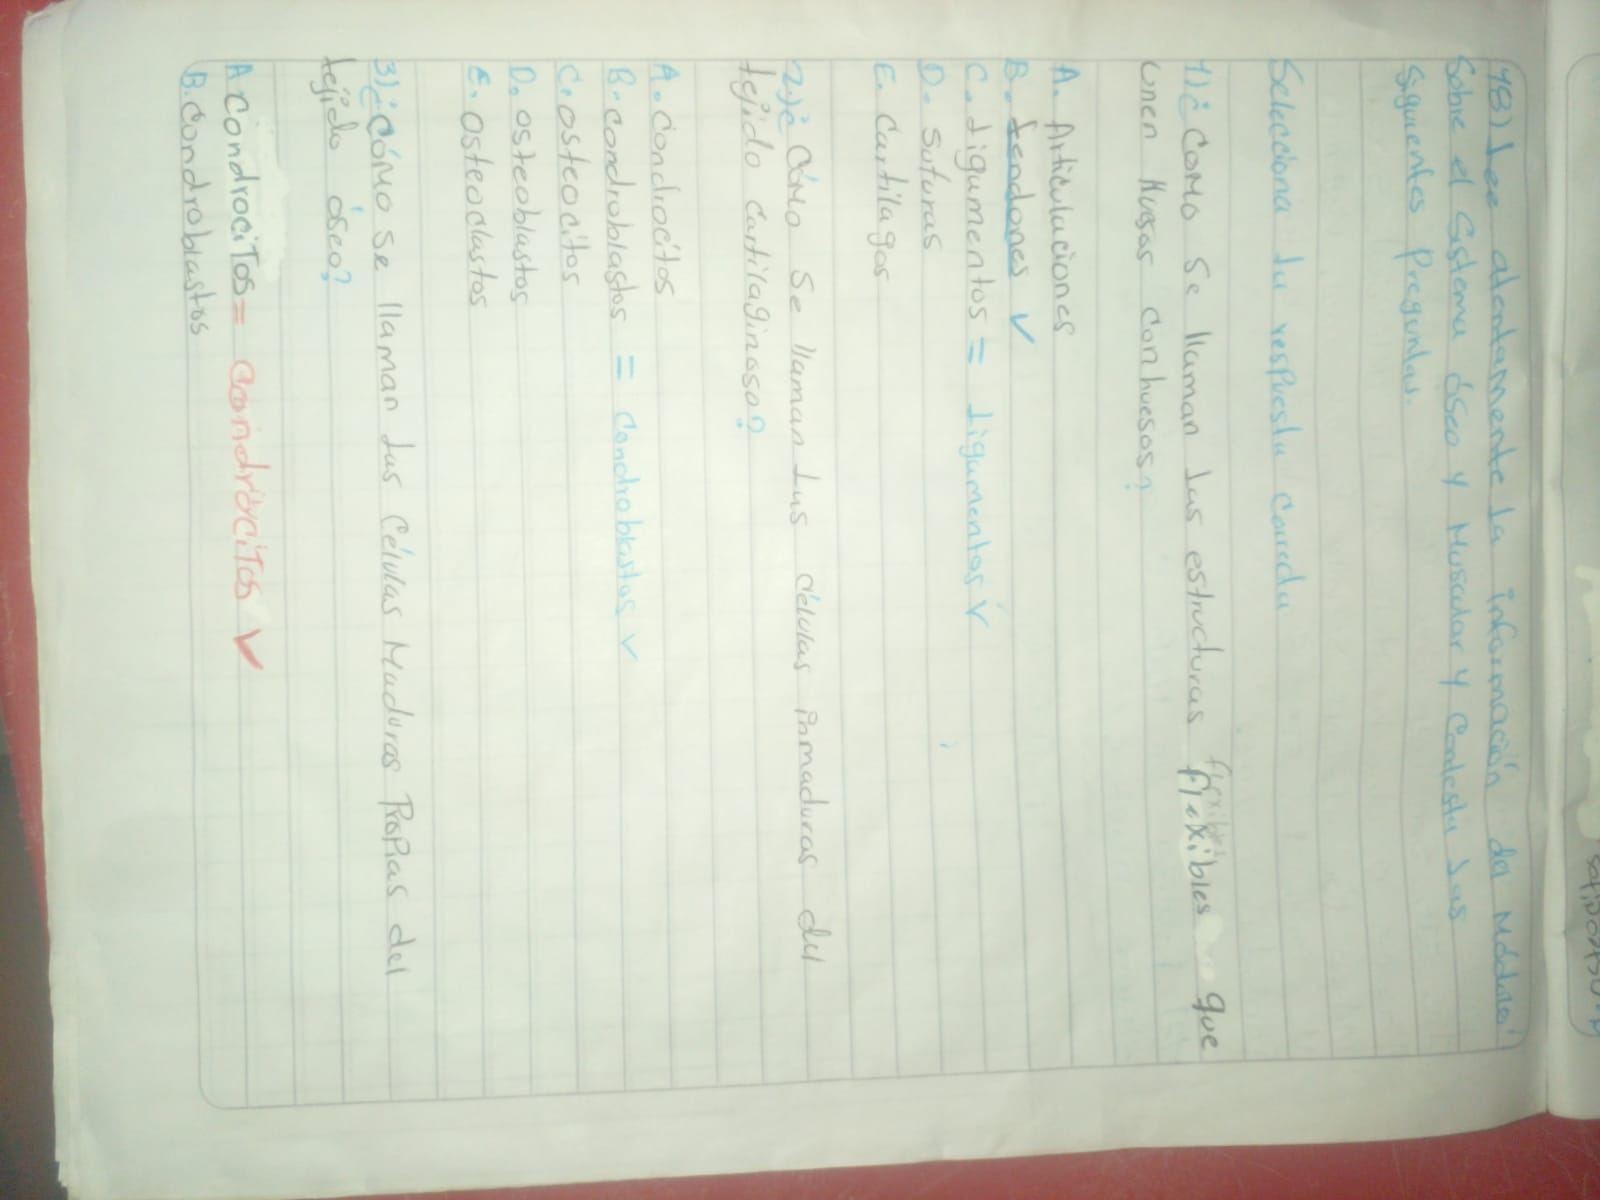 48) Lee atentamente la información del Módulo
Sobre el Sistema óseo y Muscular y Contesta Las
Siguientes Preguntas.
Selecciona La respuesta Correcta
1) ¿Como Se llaman Las estructuras flexibles que
Unen Husos Con huesos?
A. Articulaciones
B. tendones ✓
C. Ligamentos = Ligamentos ✓
D. Suturas
E. Cartilagos
2) ¿Cómo Se llaman Las Células inmaduras del
tejido Cartilaginoso?
A. Condrocitos
B. Condroblastos = Condroblastos ✓
C. osteocitos
D. osteoblastos
E. osteoclastos
3) ¿Cómo Se llaman Las Células Maduras Propias del
tejido óseo?
A. CondrociTos = CondrociTos ✓
B. Condroblastos